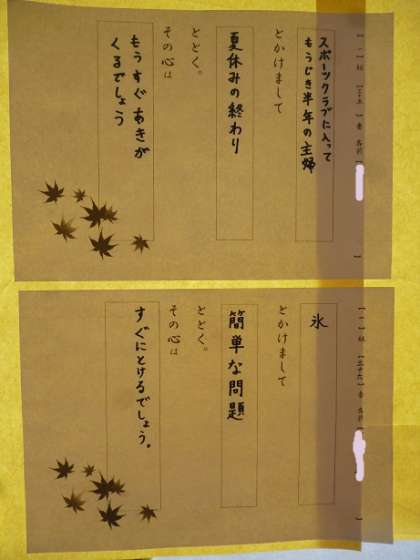 【一】組 【三十五】番 名前【 】
スポーツクラブに入って
もうじき半年の主婦
とかけまして
夏休みの終わり
ととく。
その心は
もうすぐあきが
くるでしょう
【一】組 【三十六】番 名前【 】
氷
とかけまして
簡単な問題
ととく。
その心は
すぐにとけるでしょう。